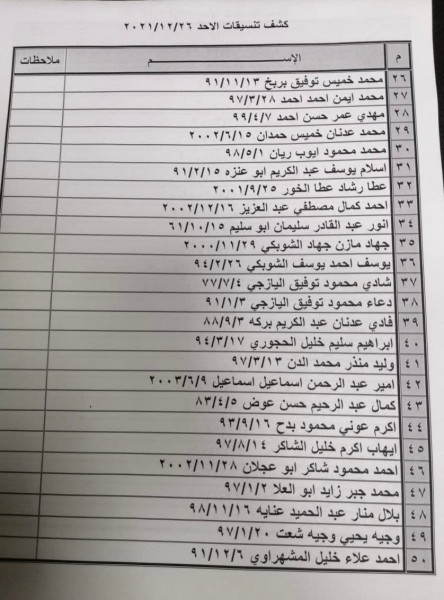 كشف تنسيقات الاحد ٢٠٢١/١٢/٢٦
م الإســـم ملاحظات
٢٦ محمد خميس توفيق بربخ ٩١/١١/١٣
٢٧ محمد ايمن احمد احمد ٩٧/٣/٢٨
٢٨ مهدي عمر حسن احمد ٩٩/٤/٧
٢٩ محمد عدنان خميس حمدان ٢٠٠٢/٦/١٥
٣٠ محمد محمود ايوب ريان ٩٨/٥/١
٣١ اسلام يوسف عبد الكريم ابو عنزه ٩١/٢/١٥
٣٢ عطا رشاد عطا الخور ٢٠٠١/٩/٢٥
٣٣ احمد كمال مصطفي عبد العزيز ٢٠٠٢/١٢/١٦
٣٤ انور عبد القادر سليمان ابو سليم ٦١/١٠/١٥
٣٥ جهاد مازن جهاد الشوبكي ٢٠٠٠/١١/٢٩
٣٦ يوسف احمد يوسف الشوبكي ٩٤/٢/٢٦
٣٧ شادي محمود توفيق اليازجي ٧٧/٧/٤
٣٨ دعاء محمود توفيق اليازجي ٩١/١/٣
٣٩ فادي عدنان عبد الكريم بركه ٨٨/٩/٣
٤٠ ابراهيم سليم خليل الحجوري ٩٤/٣/١٧
٤١ وليد منذر محمد الدن ٩٧/٣/١٣
٤٢ امير عبد الرحمن اسماعيل اسماعيل ٢٠٠٣/٦/٩
٤٣ كمال عبد الرحيم حسن عوض ٨٣/٤/٥
٤٤ اكرم عوني محمود بدح ٩٣/٩/١٦
٤٥ ايهاب اكرم خليل الشاكر ٩٧/٨/١٤
٤٦ احمد محمود شاكر ابو عجلان ٢٠٠٢/١١/٢٨
٤٧ محمد جبر زايد ابو العلا ٩٧/١/٢
٤٨ بلال منار عبد الحميد عنايه ٩٨/١١/١٦
٤٩ وجيه يحيي وجيه شعت ٩٧/١/٢٠
٥٠ احمد علاء خليل المشهراوي ٩١/١٢/٦